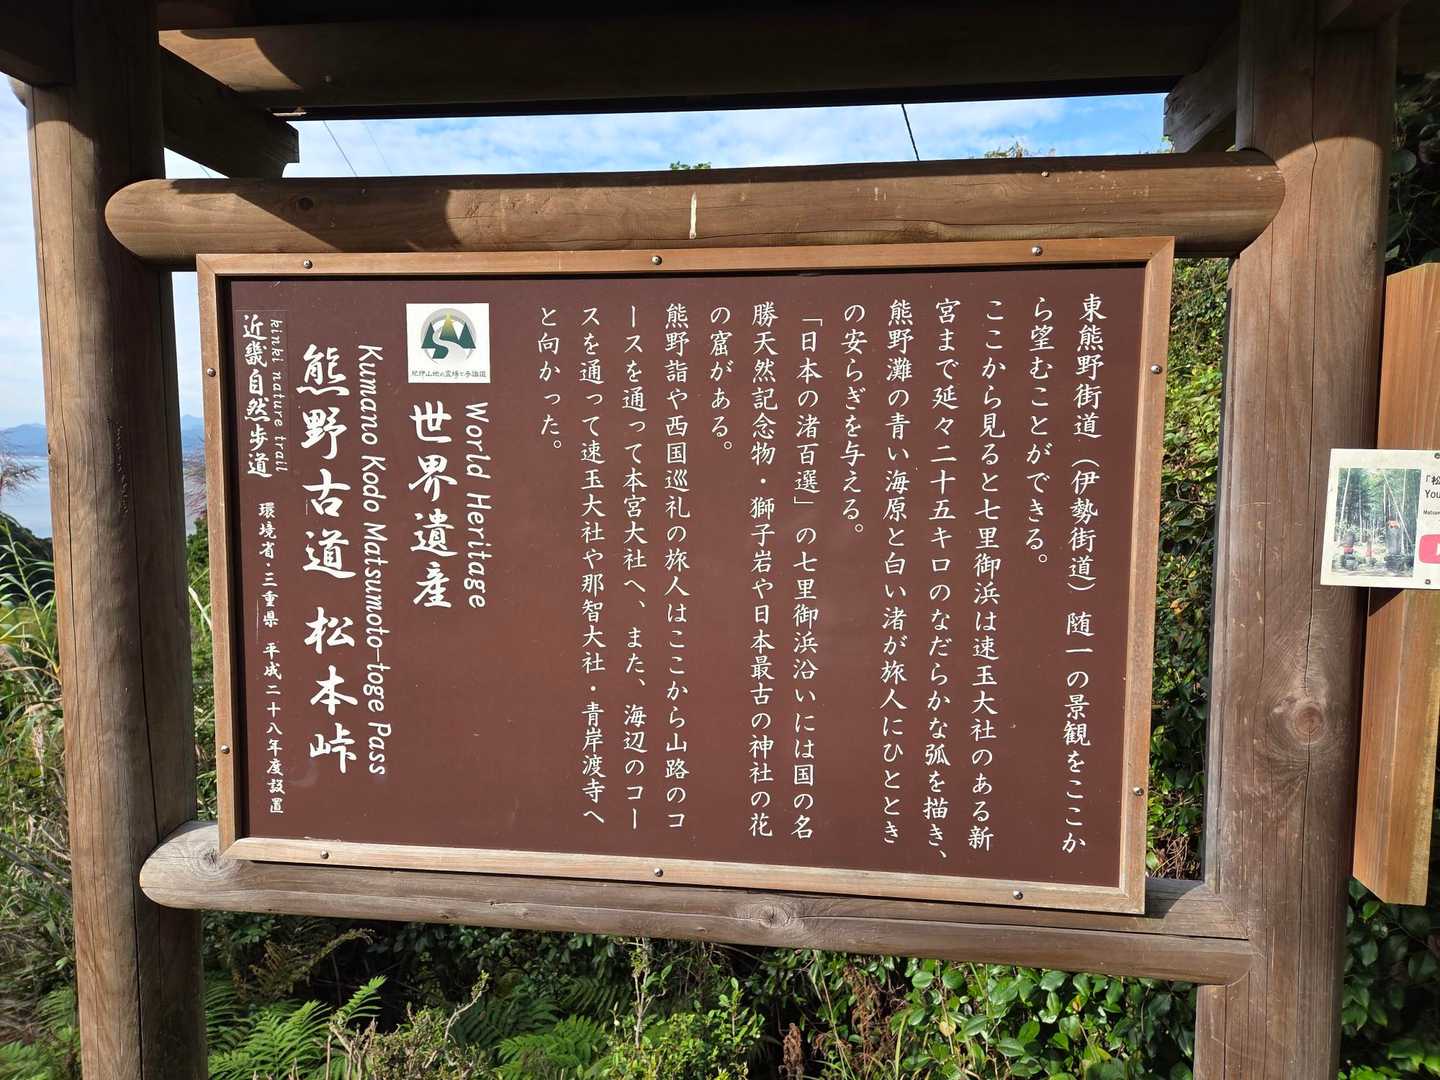 東熊野街道（伊勢街道）随一の景観をここか
ら望むことができる。
ここから見ると七里御浜は速玉大社のある新
宮まで延々二十五キロのなだらかな弧を描き、
熊野灘の青い海原と白い渚が旅人にひととき
の安らぎを与える。
「日本の渚百選」の七里御浜沿いには国の名
勝天然記念物・獅子岩や日本最古の神社の花
の窟がある。
熊野詣や西国巡礼の旅人はここから山路のコ
ースを通って本宮大社へ、また、海辺のコー
スを通って速玉大社や那智大社・青岸渡寺へ
と向かった。
World Heritage
世界遺産
紀伊山地の霊場と参詣道
Kumano Kodo Matsumoto-toge Pass
熊野古道 松本峠
kinki nature trail
近畿自然歩道
環境省・三重県 平成二十八年度設置
「松
You
Matsum